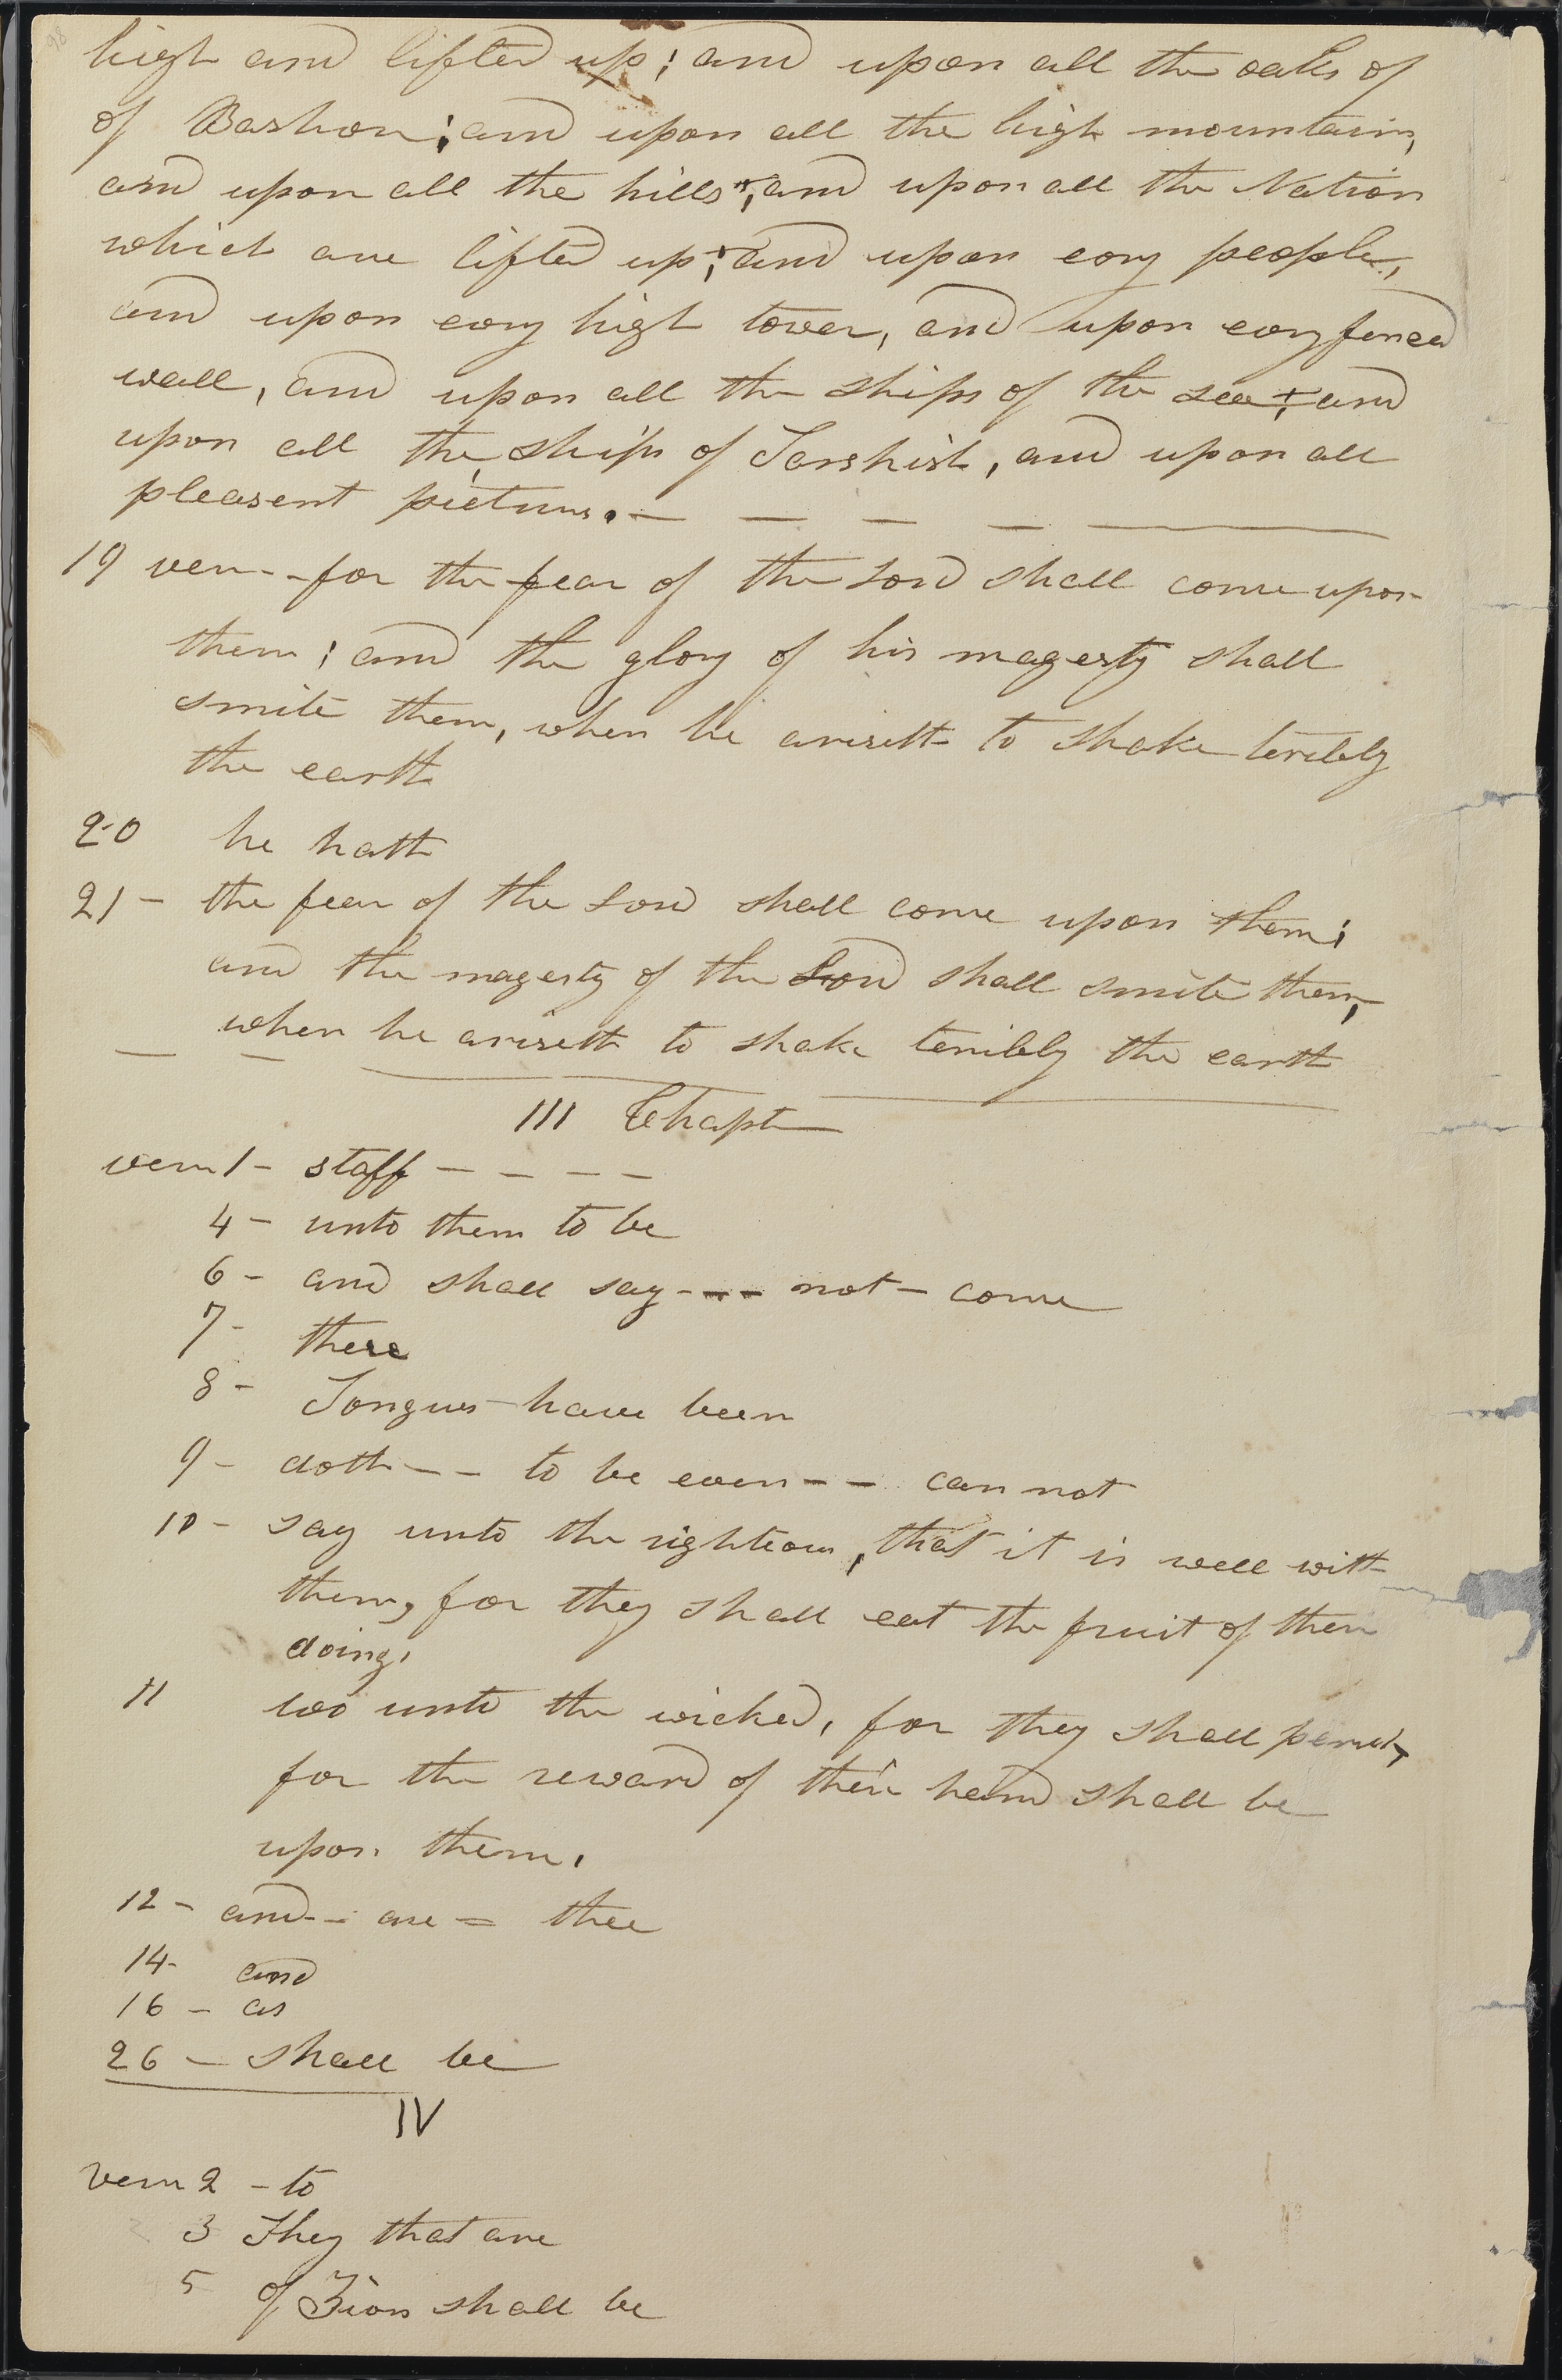 98
high and lifted up; and upon all the oaks of
of Bashon; and upon all the high mountains,
and upon all the hills; and upon all the Nation
which are lifted up; and upon evry people,
and upon evry high tower, and upon evry fenced
wall, and upon all the ships of the sea; and
upon all the ships of Tarshish, and upon all
pleasent pictures. — — — — —
19 vers - - for the fear of the Lord shall come upon
them; and the glory of his magesty shall
smite them, when he ariseth to shake teribly
the earth
20 he hath
21 - the fear of the Lord shall come upon them;
and the magesty of the Lord shall smite them,
when he ariseth to shake terribly the earth
— —
III Chapt
vers 1 - staff - - - -
4 - unto them to be
6 - and shall say - - - not - come
7 - there
8 - Tongues have been
9 - doth - - to be even - - can not
10 - say unto the righteous, that it is well with
them, for they shall eat the fruit of their
doing,
11 wo unto the wicked, for they shall perish,
for the reward of their hand shall be
upon them.
12 - and - - are = thee
14 - and
16 - as
26 - shall be
IV
vers 2 - to
3 They that are
5 of Zion shall be